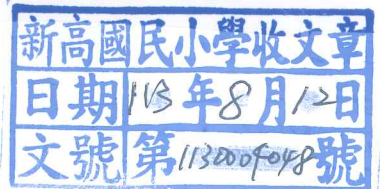 新高國民小學收文章
日期113年8月12日
文號第1130004048號